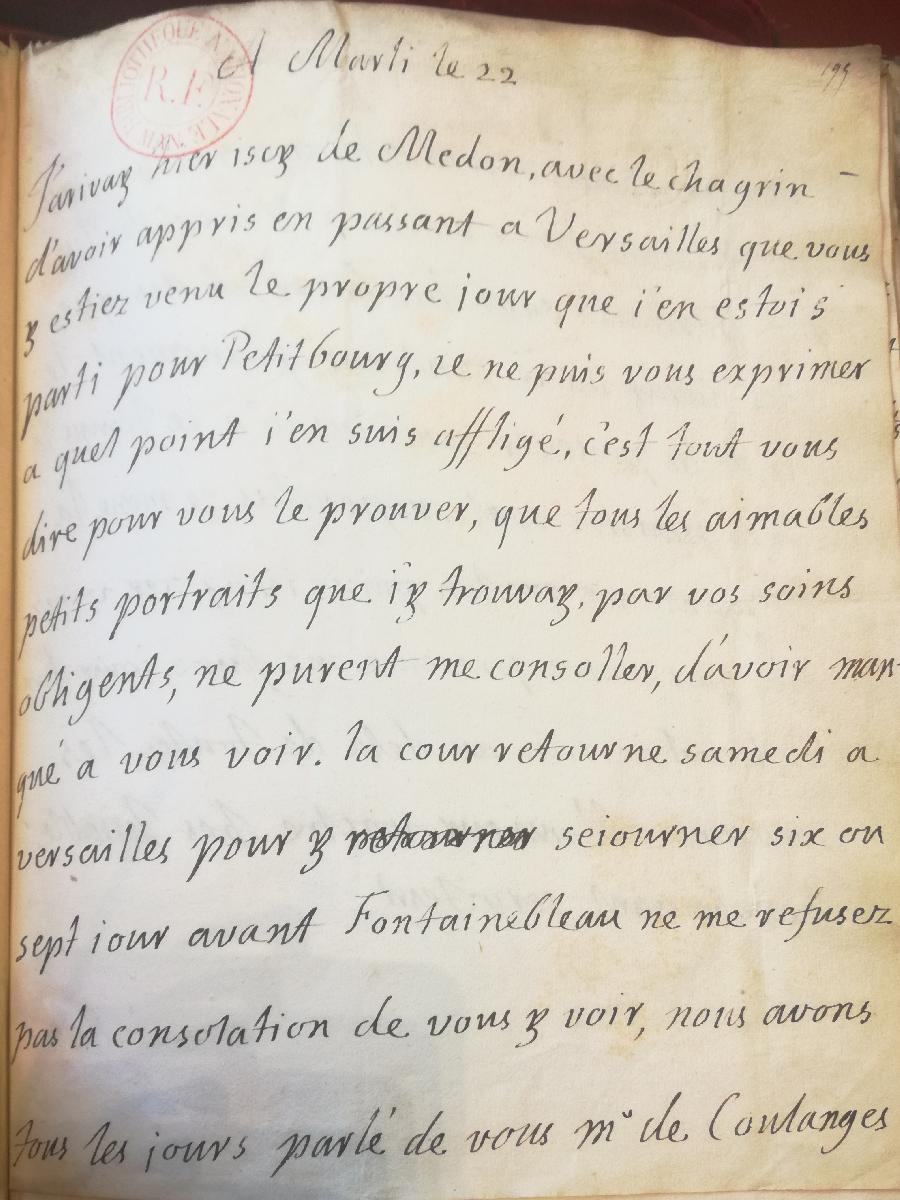 A Marli le 22
195
BIBLIOTHEQUE NATIONALE R.F.
J'arivay hier iscy de Medon, avec le chagrin
d'avoir appris en passant a Versailles que vous
y estiez venu le propre jour que i'en estois
parti pour Petitbourg, ie ne puis vous exprimer
a quel point i'en suis affligé, c'est tout vous
dire pour vous le prouver, que tous les aimables
petits portraits que i'y trouvay, par vos soins
obligents, ne purent me consoller, d'avoir man-
qué a vous voir. la cour retourne samedi a
versailles pour y retourner seiourner six ou
sept iour avant Fontainebleau ne me refusez
pas la consolation de vous y voir, nous avons
tous les jours parlé de vous mr de Coulanges